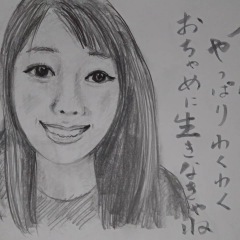 やっぱりわくわく
おちゃめに生きなきゃね